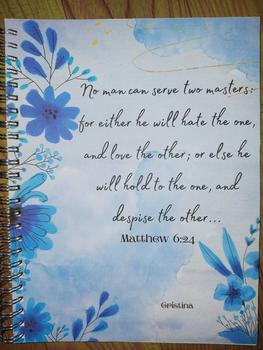 No man can serve two masters:
for either he will hate the one,
and love the other; or else he
will hold to the one, and
despise the other...
Matthew 6:24
Cristina